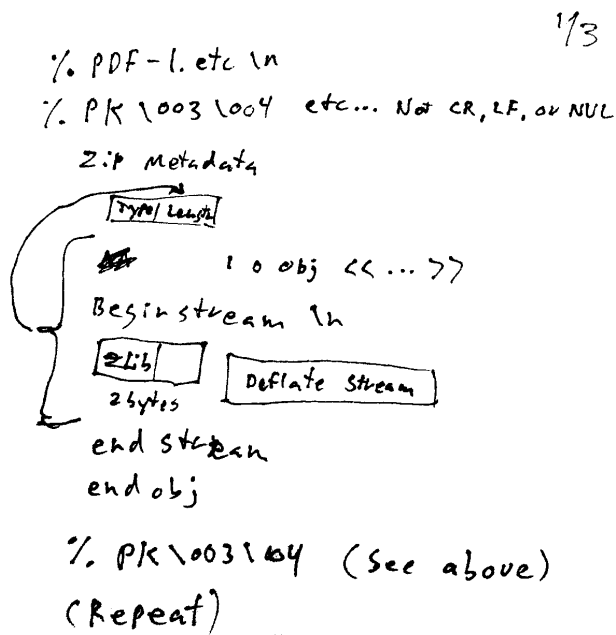 1/3
% PDF-1. etc \n
% PK \003 \004 etc... Not CR, LF, or NUL
Zip Metadata
Type/ Length
1 0 obj << ... >>
Begin stream \n
ZLib
Deflate Stream
2 bytes
end stream
end obj
% PK \003 \04 (See above)
(Repeat)